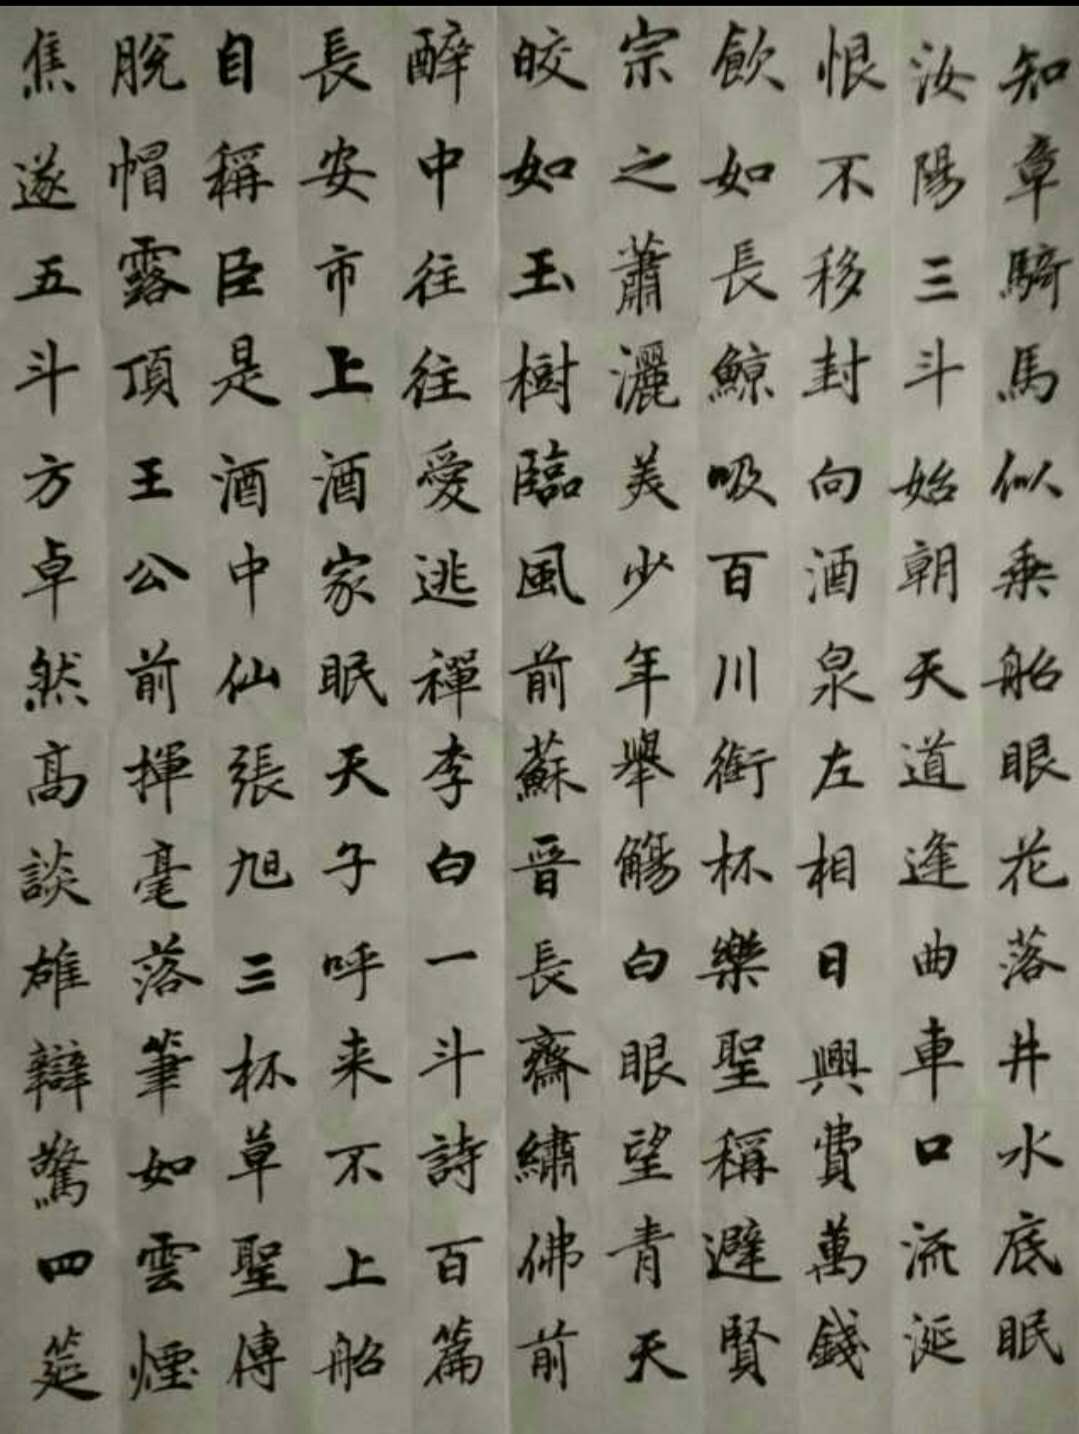 知章騎馬似乘船眼花落井水底眠
汝陽三斗始朝天道逢曲車口流涎
恨不移封向酒泉左相日興費萬錢
飲如長鯨吸百川銜杯樂聖稱避賢
宗之蕭灑美少年舉觴白眼望青天
皎如玉樹臨風前蘇晉長齋繡佛前
醉中往往愛逃禪李白一斗詩百篇
長安市上酒家眠天子呼来不上船
自稱臣是酒中仙張旭三杯草聖傳
脫帽露頂王公前揮毫落筆如雲煙
焦遂五斗方卓然高談雄辯驚四筵